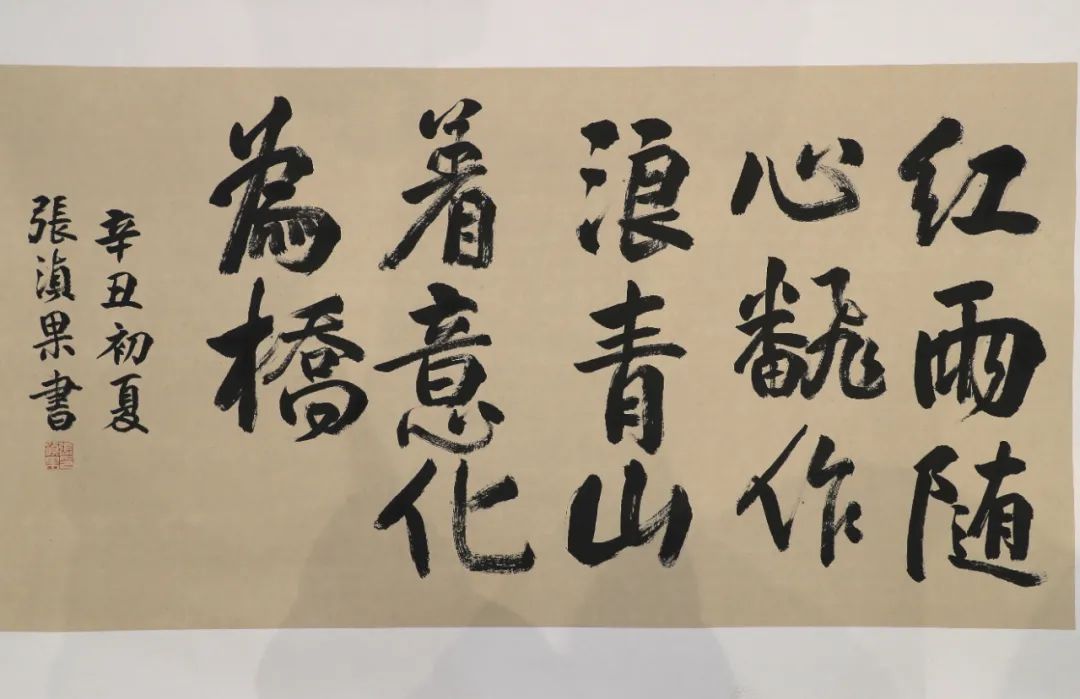 红雨随
心翻作
浪青山
着意化
為橋
辛丑初夏
張滇果書